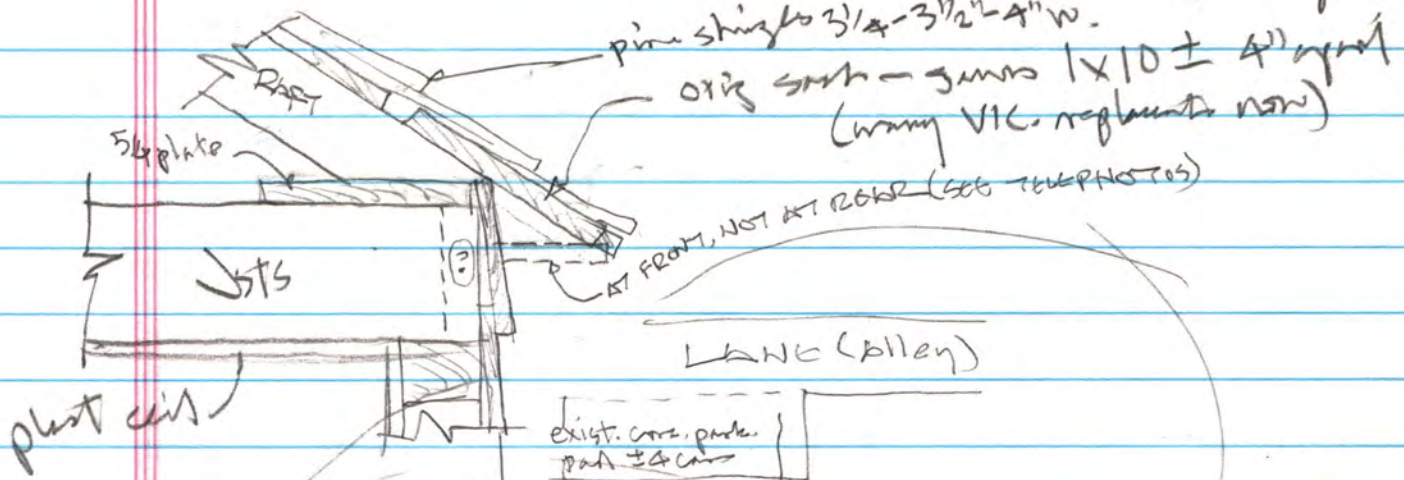 pine shingles 3 1/4 - 3 1/2" - 4" W.
RAFT
orig 1x10 ± 4"
(many VIC. replacements now)
5/4 plate
AT FRONT, NOT AT REAR (SEE TELEPHOTOS)
?
JSTS
LANE (alley)
plast ceil
exist. conc. park.
pad ±4 cars